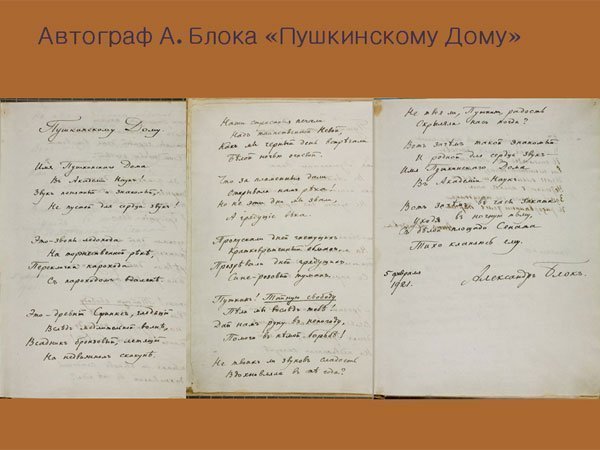 Автограф А. Блока «Пушкинскому Дому»
Пушкинскому Дому.
Имя Пушкинскаго Дома
Въ Академіи Наукъ!
Звукъ понятный и знакомый,
Не пустой для сердца звукъ!
Это – звоны ледохода
На торжественной рѣкѣ,
Перекличка парохода
Съ пароходомъ вдалекѣ.
Это – древній Сфинксъ, глядящій
Вслѣдъ медлительной волнѣ,
Всадникъ бронзовый, летящій
На недвижномъ скакунѣ.
Наши страстныя печали
Надъ таинственной Невой,
Какъ мы черный день встрѣчали
Бѣлой ночью огневой.
Что за пламенныя дали
Открывала намъ рѣка!
Но не эти дни мы звали,
А грядущіе вѣка.
Пропуская дней гнетущихъ
Кратковременный обманъ,
Прозрѣвали дней грядущихъ
Сине-розовый туманъ.
Пушкинъ! Тайную свободу
Пѣли мы вослѣдъ тебѣ!
Дай намъ руку въ непогоду,
Помоги въ нѣмой борьбѣ!
Не твоихъ ли звуковъ сладость
Вдохновляла въ тѣ года?
Не твоя ли, Пушкинъ, радость
Окрыляла насъ тогда?
Вотъ зачѣмъ такой знакомый
И родной для сердца звукъ –
Имя Пушкинскаго Дома
Въ Академіи Наукъ.
Вотъ зачѣмъ, въ часы заката
Уходя въ ночную тьму,
Съ бѣлой площади Сената
Тихо кланяюсь ему.
5 февраля
1921.
Александръ Блокъ.